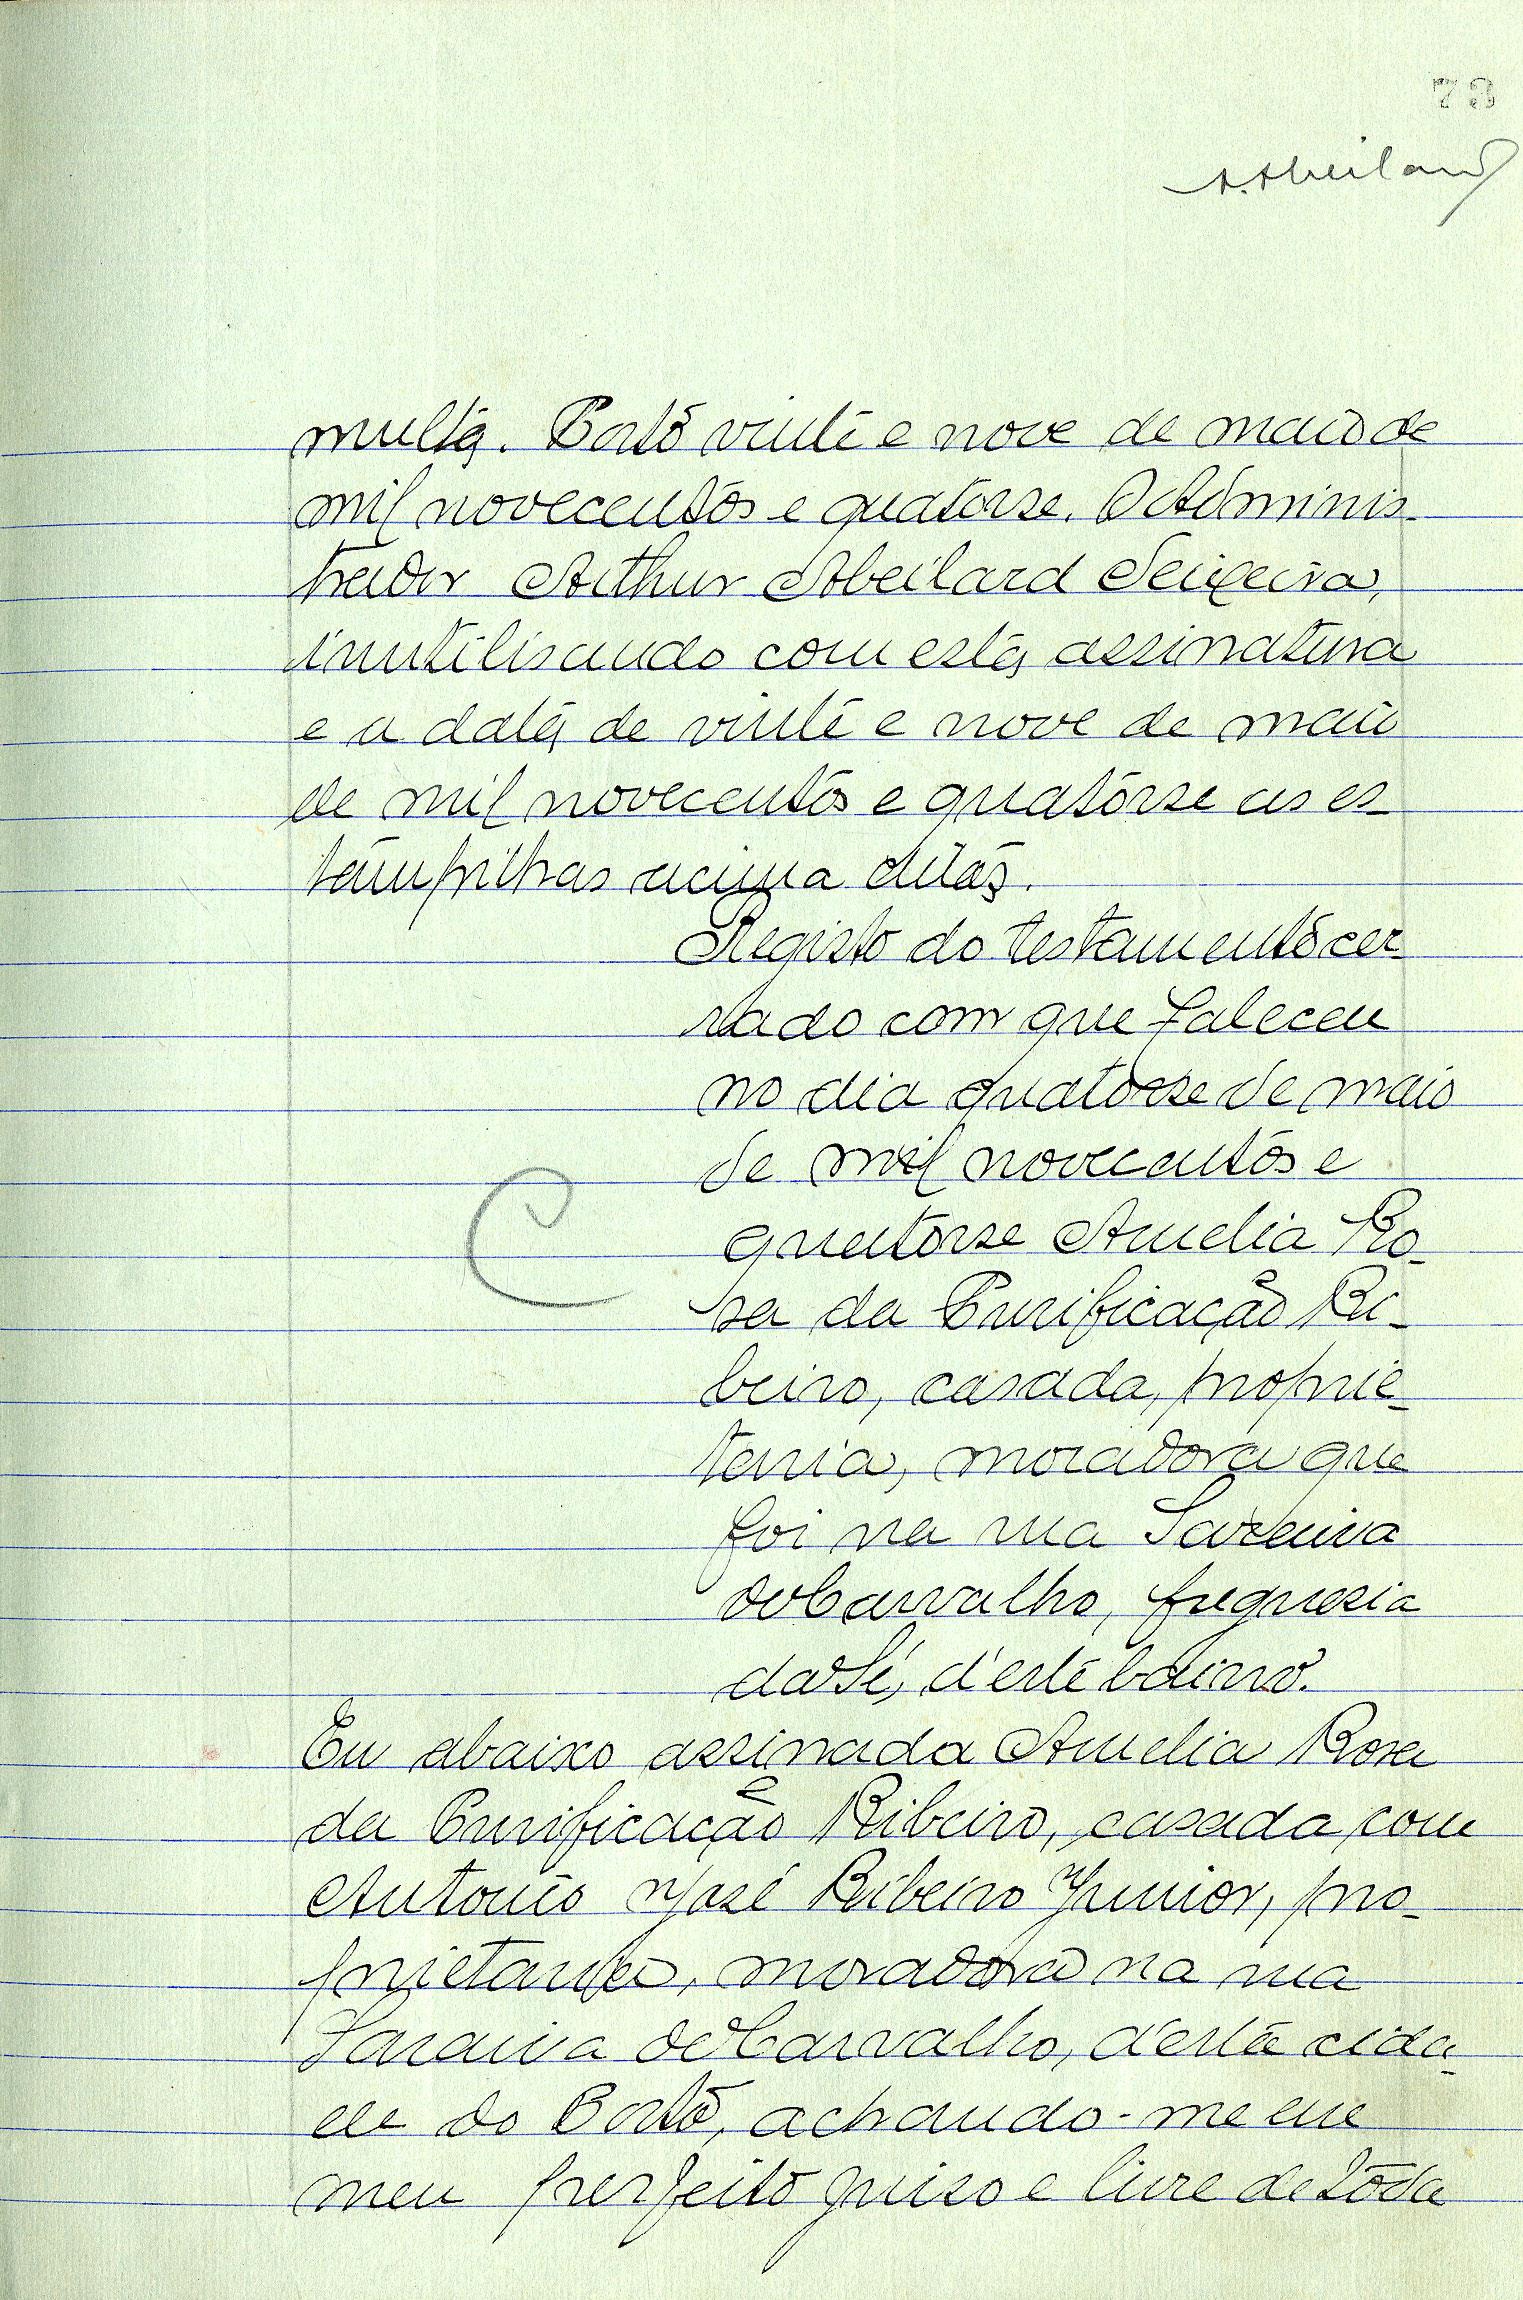 73
A. Abeilard
multa. Porto vinte e nove de maio de
mil novecentos e quatorse. O Adminis-
trador Arthur Abeilard Teixeira,
inutilisando com esta assinatura
e a data de vinte e nove de maio
de mil novecentos e quatorse as es-
tampilhas acima ditas.
Registo do testamento cer-
rado com que faleceu
no dia quatorse de maio
de mil novecentos e
quatorse Amelia Ro-
sa da Purificação Ri-
beiro, casada, proprie-
taria, moradora que
foi na rua Saraiva
de Carvalho, freguesia
da Sé, d'este bairro.
Eu abaixo assinada Amelia Rosa
da Purificação Ribeiro, casada com
Antonio José Ribeiro Junior, pro-
prietario, moradora na rua
Saraiva de Carvalho, d'esta cida-
de do Porto, achando-me em
meu perfeito juiso e livre de toda